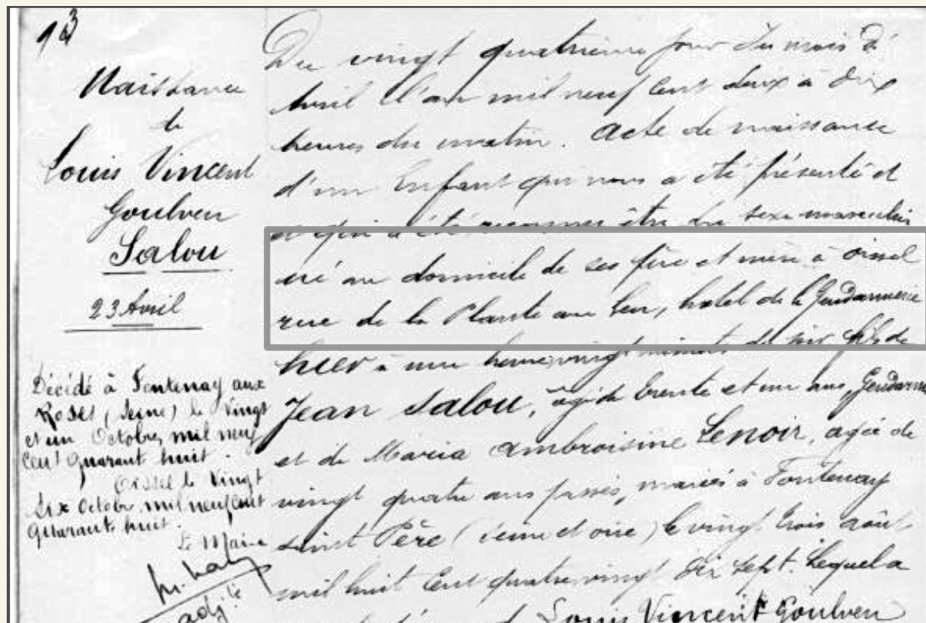 93
Naissance
de
Louis Vincent
Goulven
Salou
23 Avril
Décédé à Fontenay aux
Roses (Seine) le vingt
et un Octobre mil neuf
cent quarant huit.
Oissel le vingt
six Octobre mil neuf cent
quarante huit.
Le Maire
adj
Du vingt quatrième jour du mois d'
Avril l'an mil neuf cent deux à dix
heures du matin. Acte de naissance
d'un Enfant qui nous a été présenté et
et qui a été reconnu être du sexe masculin
né au domicile de ses père et mère à Oissel
rue de la Plante au , hotel de la Gendarmerie
hier à une heure vingt minutes du soir fils de
Jean Salou, agé de trente et un ans, Gendarme
et de Maria Ambroisine Lenoir, agée de
vingt quatre ans passés, mariés à Fontenay
saint Père (Seine et oise) le vingt trois août
mil huit cent quatre vingt dix sept. Lequel a
Louis Vincent Goulven